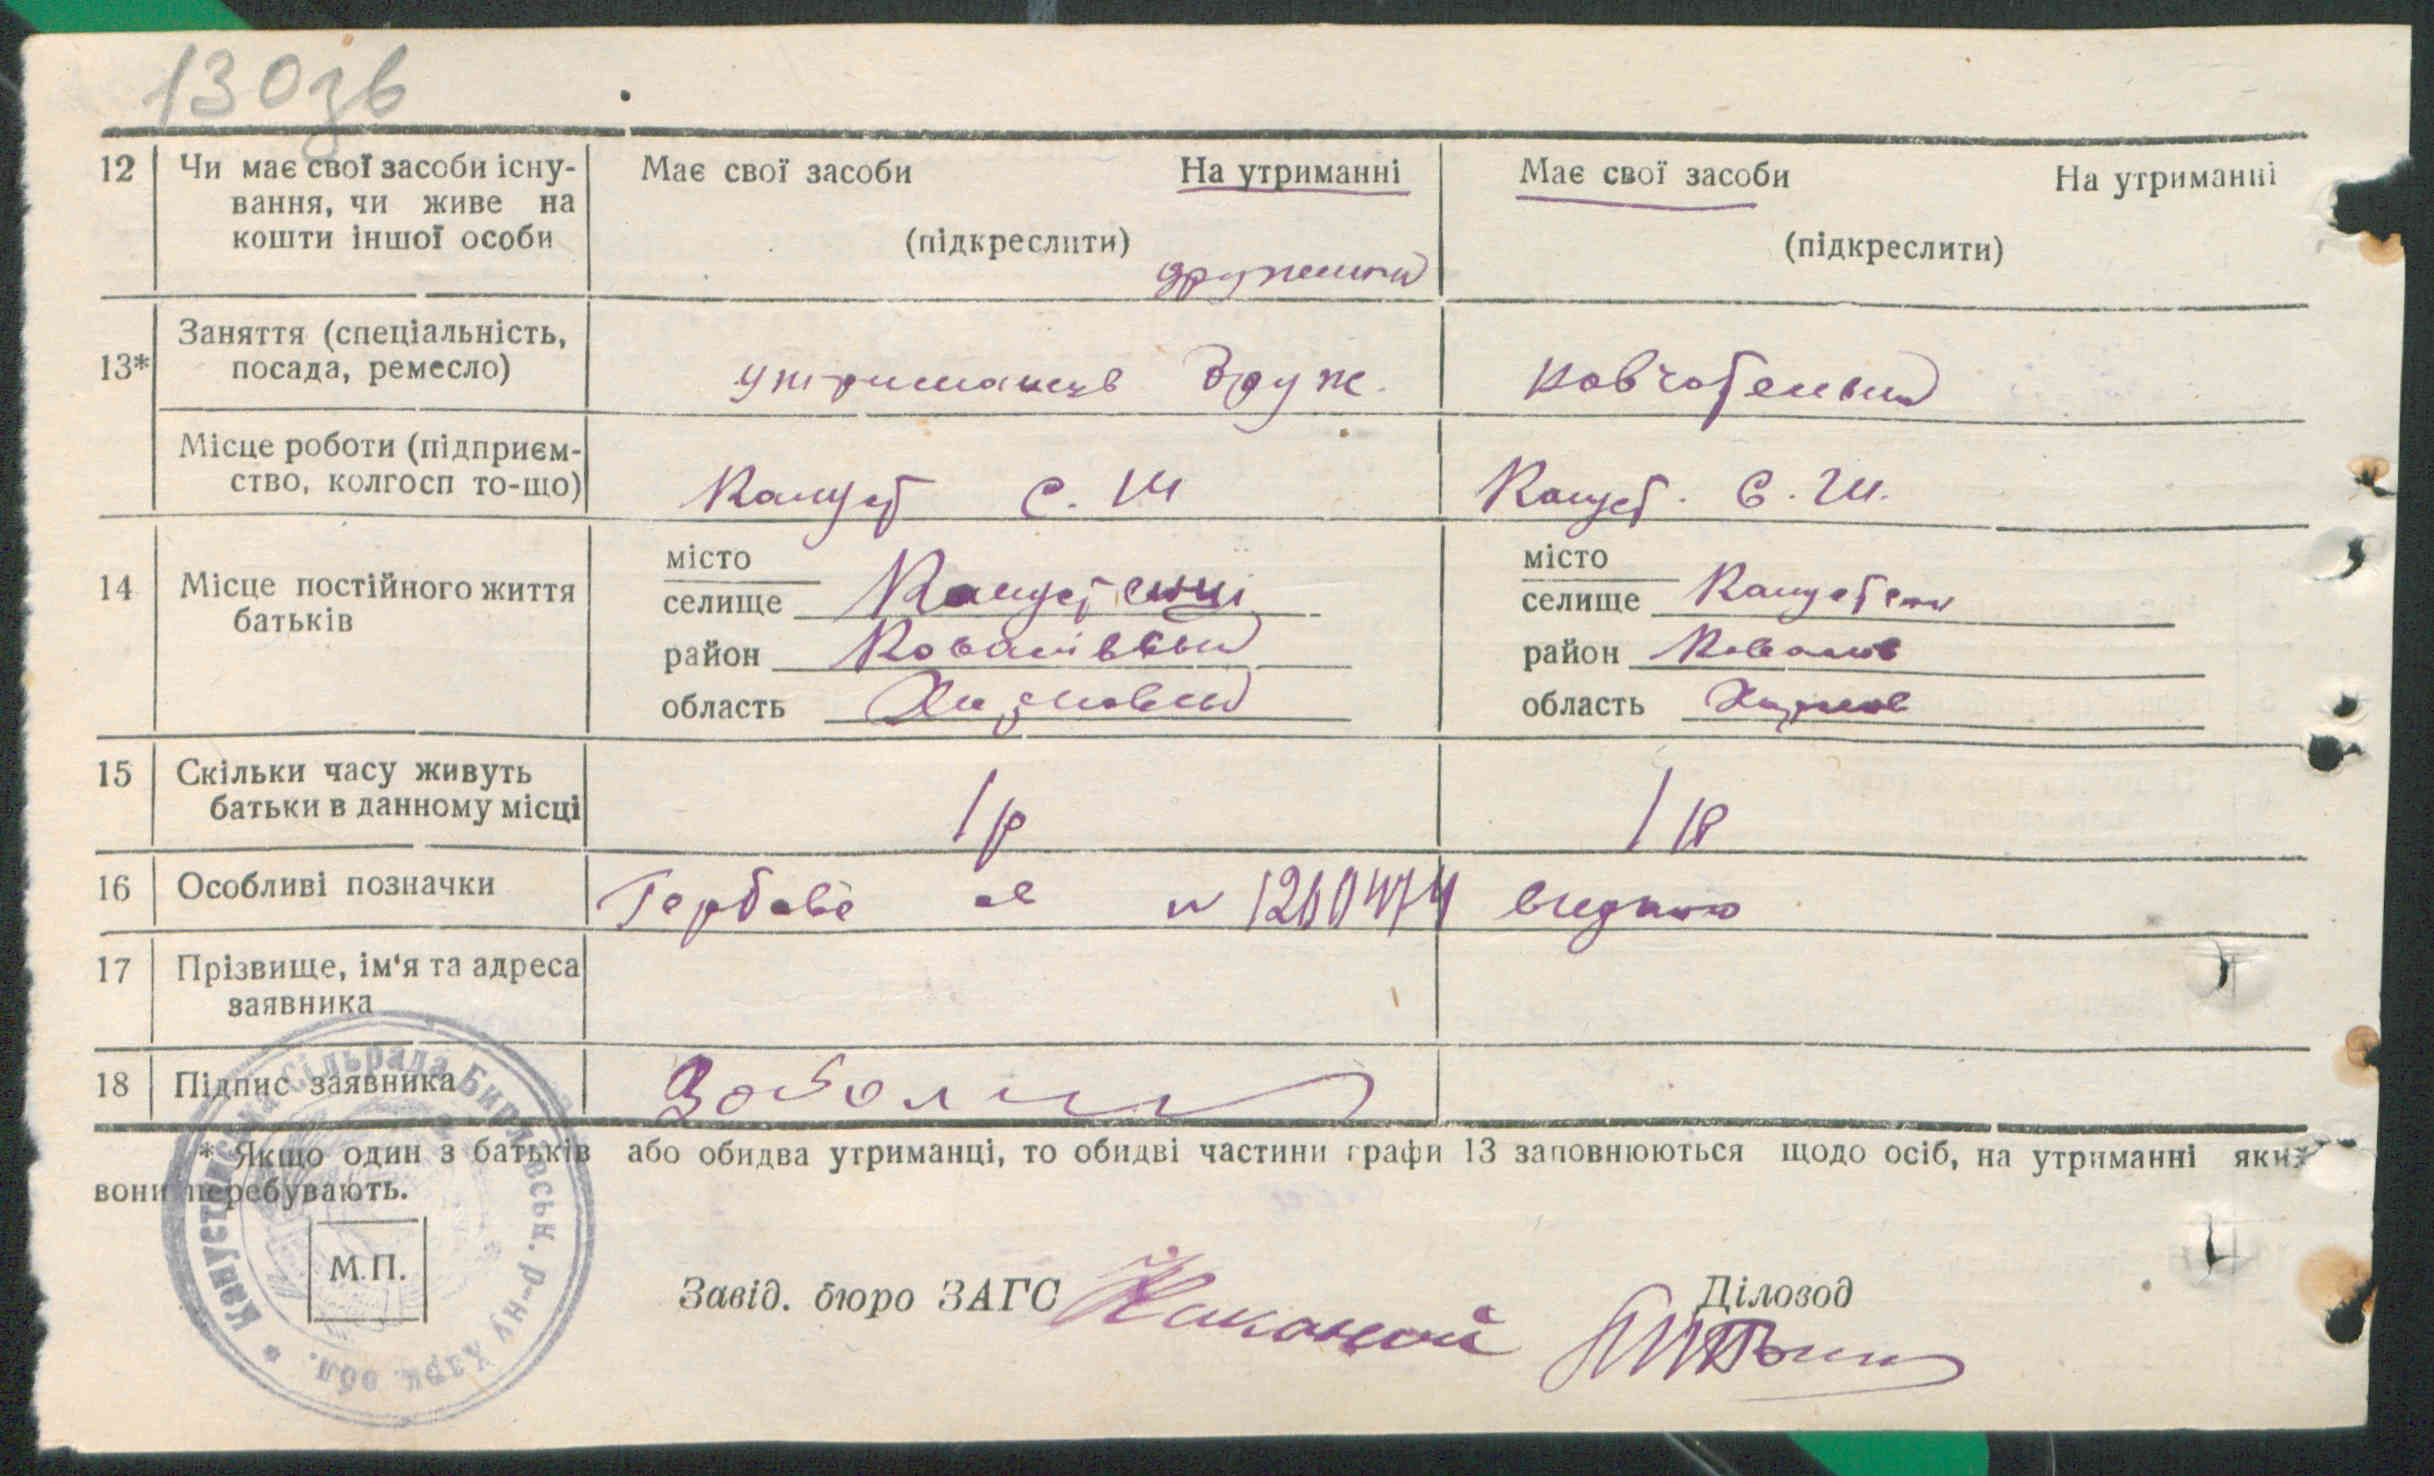 130зв
12 Чи має свої засоби існу- Має свої засоби На утриманні Має свої засоби На утриманні
вання, чи живе на
кошти іншої особи (підкреслити) (підкреслити)
дружини
Заняття (спеціальність,
13* посада, ремесло) утриманець друж.
Місце роботи (підприєм-
ство, колгосп то-що) Капуст С. Ш Капуст. С. Ш.
місто місто
14 Місце постійного життя селище Капустенці селище
батьків
район район
область область
15 Скільки часу живуть
батьки в данному місці 1 р 1 р
16 Особливі позначки Гербове № 1260474 видано
17 Прізвище, ім'я та адреса
заявника
18 Підпис заявника
* Якщо один з батьків або обидва утриманці, то обидві частини графи 13 заповнюються щодо осіб, на утриманні яких
вони перебувають.
М.П.
Завід. бюро ЗАГС Діловод
Сільрада р-ну Харк. обл.